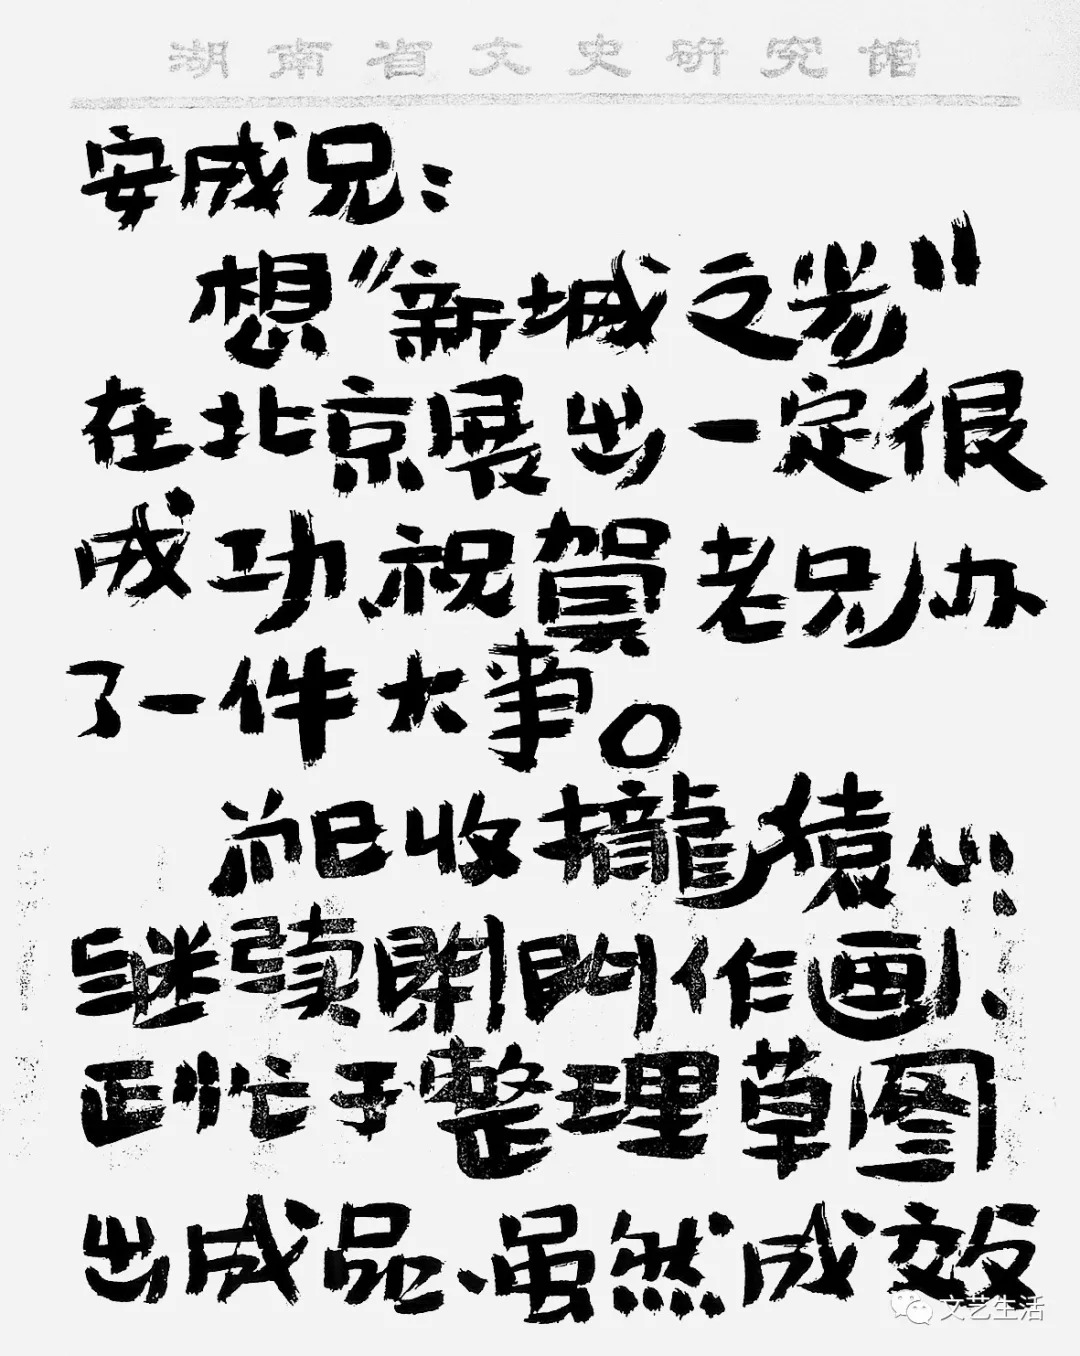 湖南省文史研究馆
安成兄：
想“新城之步”
在北京展出一定很
成功、祝賀老兄办
了一件大事。
前已收攏猿心；
继续闭門作画、
正忙于整理草图
出成品、虽然成效
文艺生活